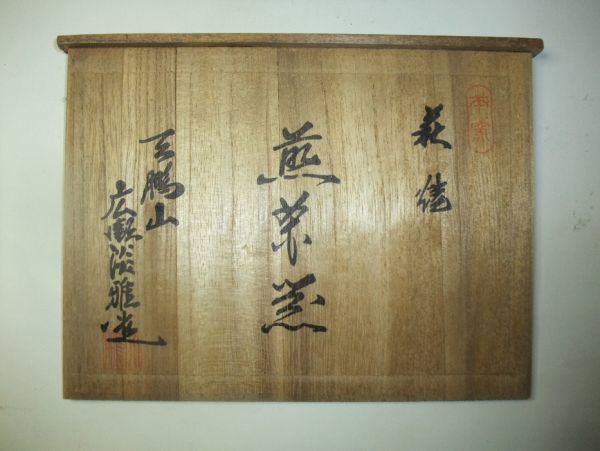 萩焼
煎茶器
天鵬山
広瀬淡雅造